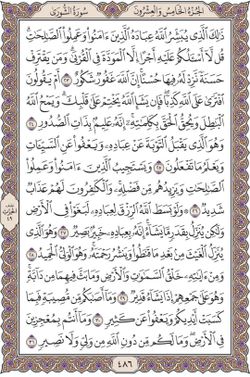 الجزء الخامس والعشرون
سورة الشورى
ذَٰلِكَ ٱلَّذِي يُبَشِّرُ ٱللَّهُ عِبَادَهُ ٱلَّذِينَ ءَامَنُوا۟ وَعَمِلُوا۟ ٱلصَّٰلِحَٰتِ
قُل لَّآ أَسْـَٔلُكُمْ عَلَيْهِ أَجْرًا إِلَّا ٱلْمَوَدَّةَ فِي ٱلْقُرْبَىٰ وَمَن يَقْتَرِفْ
حَسَنَةً نَّزِدْ لَهُۥ فِيهَا حُسْنًا إِنَّ ٱللَّهَ غَفُورٌ شَكُورٌ ٢٣ أَمْ يَقُولُونَ
ٱفْتَرَىٰ عَلَى ٱللَّهِ كَذِبًا فَإِن يَشَإِ ٱللَّهُ يَخْتِمْ عَلَىٰ قَلْبِكَ وَيَمْحُ ٱللَّهُ
ٱلْبَٰطِلَ وَيُحِقُّ ٱلْحَقَّ بِكَلِمَٰتِهِۦٓ إِنَّهُۥ عَلِيمٌۢ بِذَاتِ ٱلصُّدُورِ ٢٤
وَهُوَ ٱلَّذِي يَقْبَلُ ٱلتَّوْبَةَ عَنْ عِبَادِهِۦ وَيَعْفُوا۟ عَنِ ٱلسَّيِّـَٔاتِ
وَيَعْلَمُ مَا تَفْعَلُونَ ٢٥ وَيَسْتَجِيبُ ٱلَّذِينَ ءَامَنُوا۟ وَعَمِلُوا۟
ٱلصَّٰلِحَٰتِ وَيَزِيدُهُم مِّن فَضْلِهِۦ وَٱلْكَٰفِرُونَ لَهُمْ عَذَابٌ
شَدِيدٌ ٢٦ وَلَوْ بَسَطَ ٱللَّهُ ٱلرِّزْقَ لِعِبَادِهِۦ لَبَغَوْا۟ فِي ٱلْأَرْضِ
وَلَٰكِن يُنَزِّلُ بِقَدَرٍ مَّا يَشَآءُ إِنَّهُۥ بِعِبَادِهِۦ خَبِيرٌۢ بَصِيرٌ ٢٧ وَهُوَ ٱلَّذِي
يُنَزِّلُ ٱلْغَيْثَ مِنۢ بَعْدِ مَا قَنَطُوا۟ وَيَنشُرُ رَحْمَتَهُۥ وَهُوَ ٱلْوَلِيُّ ٱلْحَمِيدُ ٢٨
وَمِنْ ءَايَٰتِهِۦ خَلْقُ ٱلسَّمَٰوَٰتِ وَٱلْأَرْضِ وَمَا بَثَّ فِيهِمَا مِن دَآبَّةٍ
وَهُوَ عَلَىٰ جَمْعِهِمْ إِذَا يَشَآءُ قَدِيرٌ ٢٩ وَمَآ أَصَٰبَكُم مِّن مُّصِيبَةٍ فَبِمَا
كَسَبَتْ أَيْدِيكُمْ وَيَعْفُوا۟ عَن كَثِيرٍ ٣٠ وَمَآ أَنتُم بِمُعْجِزِينَ
فِي ٱلْأَرْضِ وَمَا لَكُم مِّن دُونِ ٱللَّهِ مِن وَلِيٍّ وَلَا نَصِيرٍ ٣١
٤٨٦